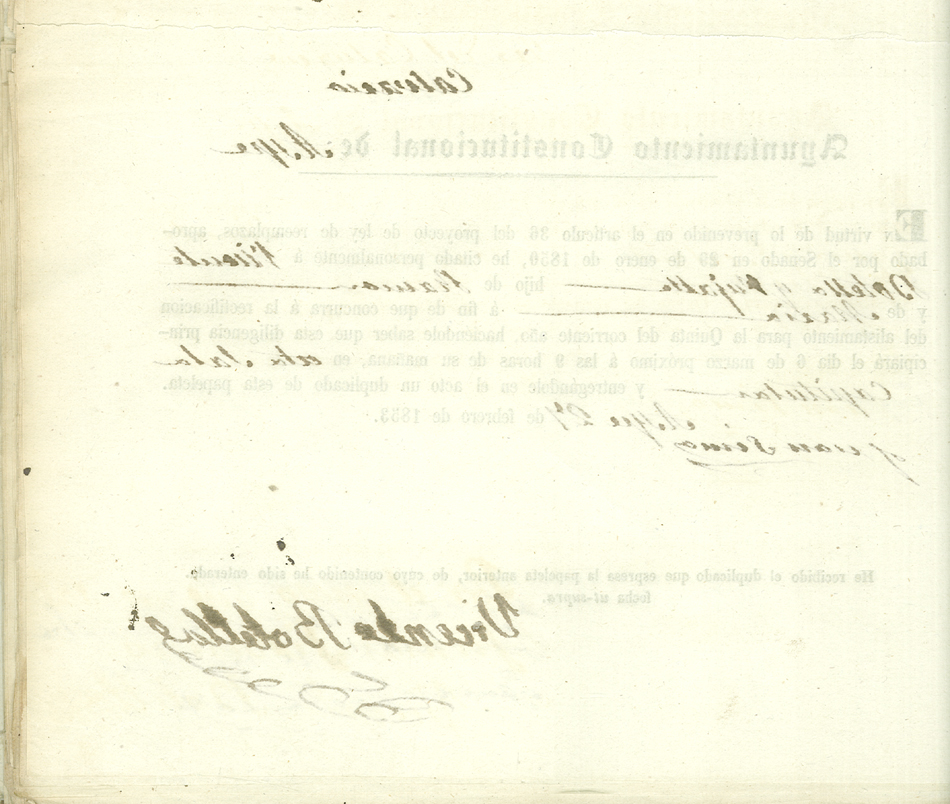 Ayuntamiento Constitucional de Aspe
En virtud de lo prevenido en el artículo 36 del proyecto de ley de reemplazos, apro-
bado por el Senado en 29 de enero de 1850, he citado personalmente á Vicente
Botella y hijo de Ramon
y de Maria á fin de que concurra á la rectificacion
del alistamiento para la Quinta del corriente año, haciendole saber que esta diligencia prin-
cipiará el dia 6 de marzo próximo á las 9 horas de su mañana, en esta Sala
Capitular y entregándole en el acto un duplicado de esta papeleta.
Aspe 27 de febrero de 1853.
He recibido el duplicado que espresa la papeleta anterior, de cuyo contenido he sido enterado.
fecha ut-supra.
Vicente Botella